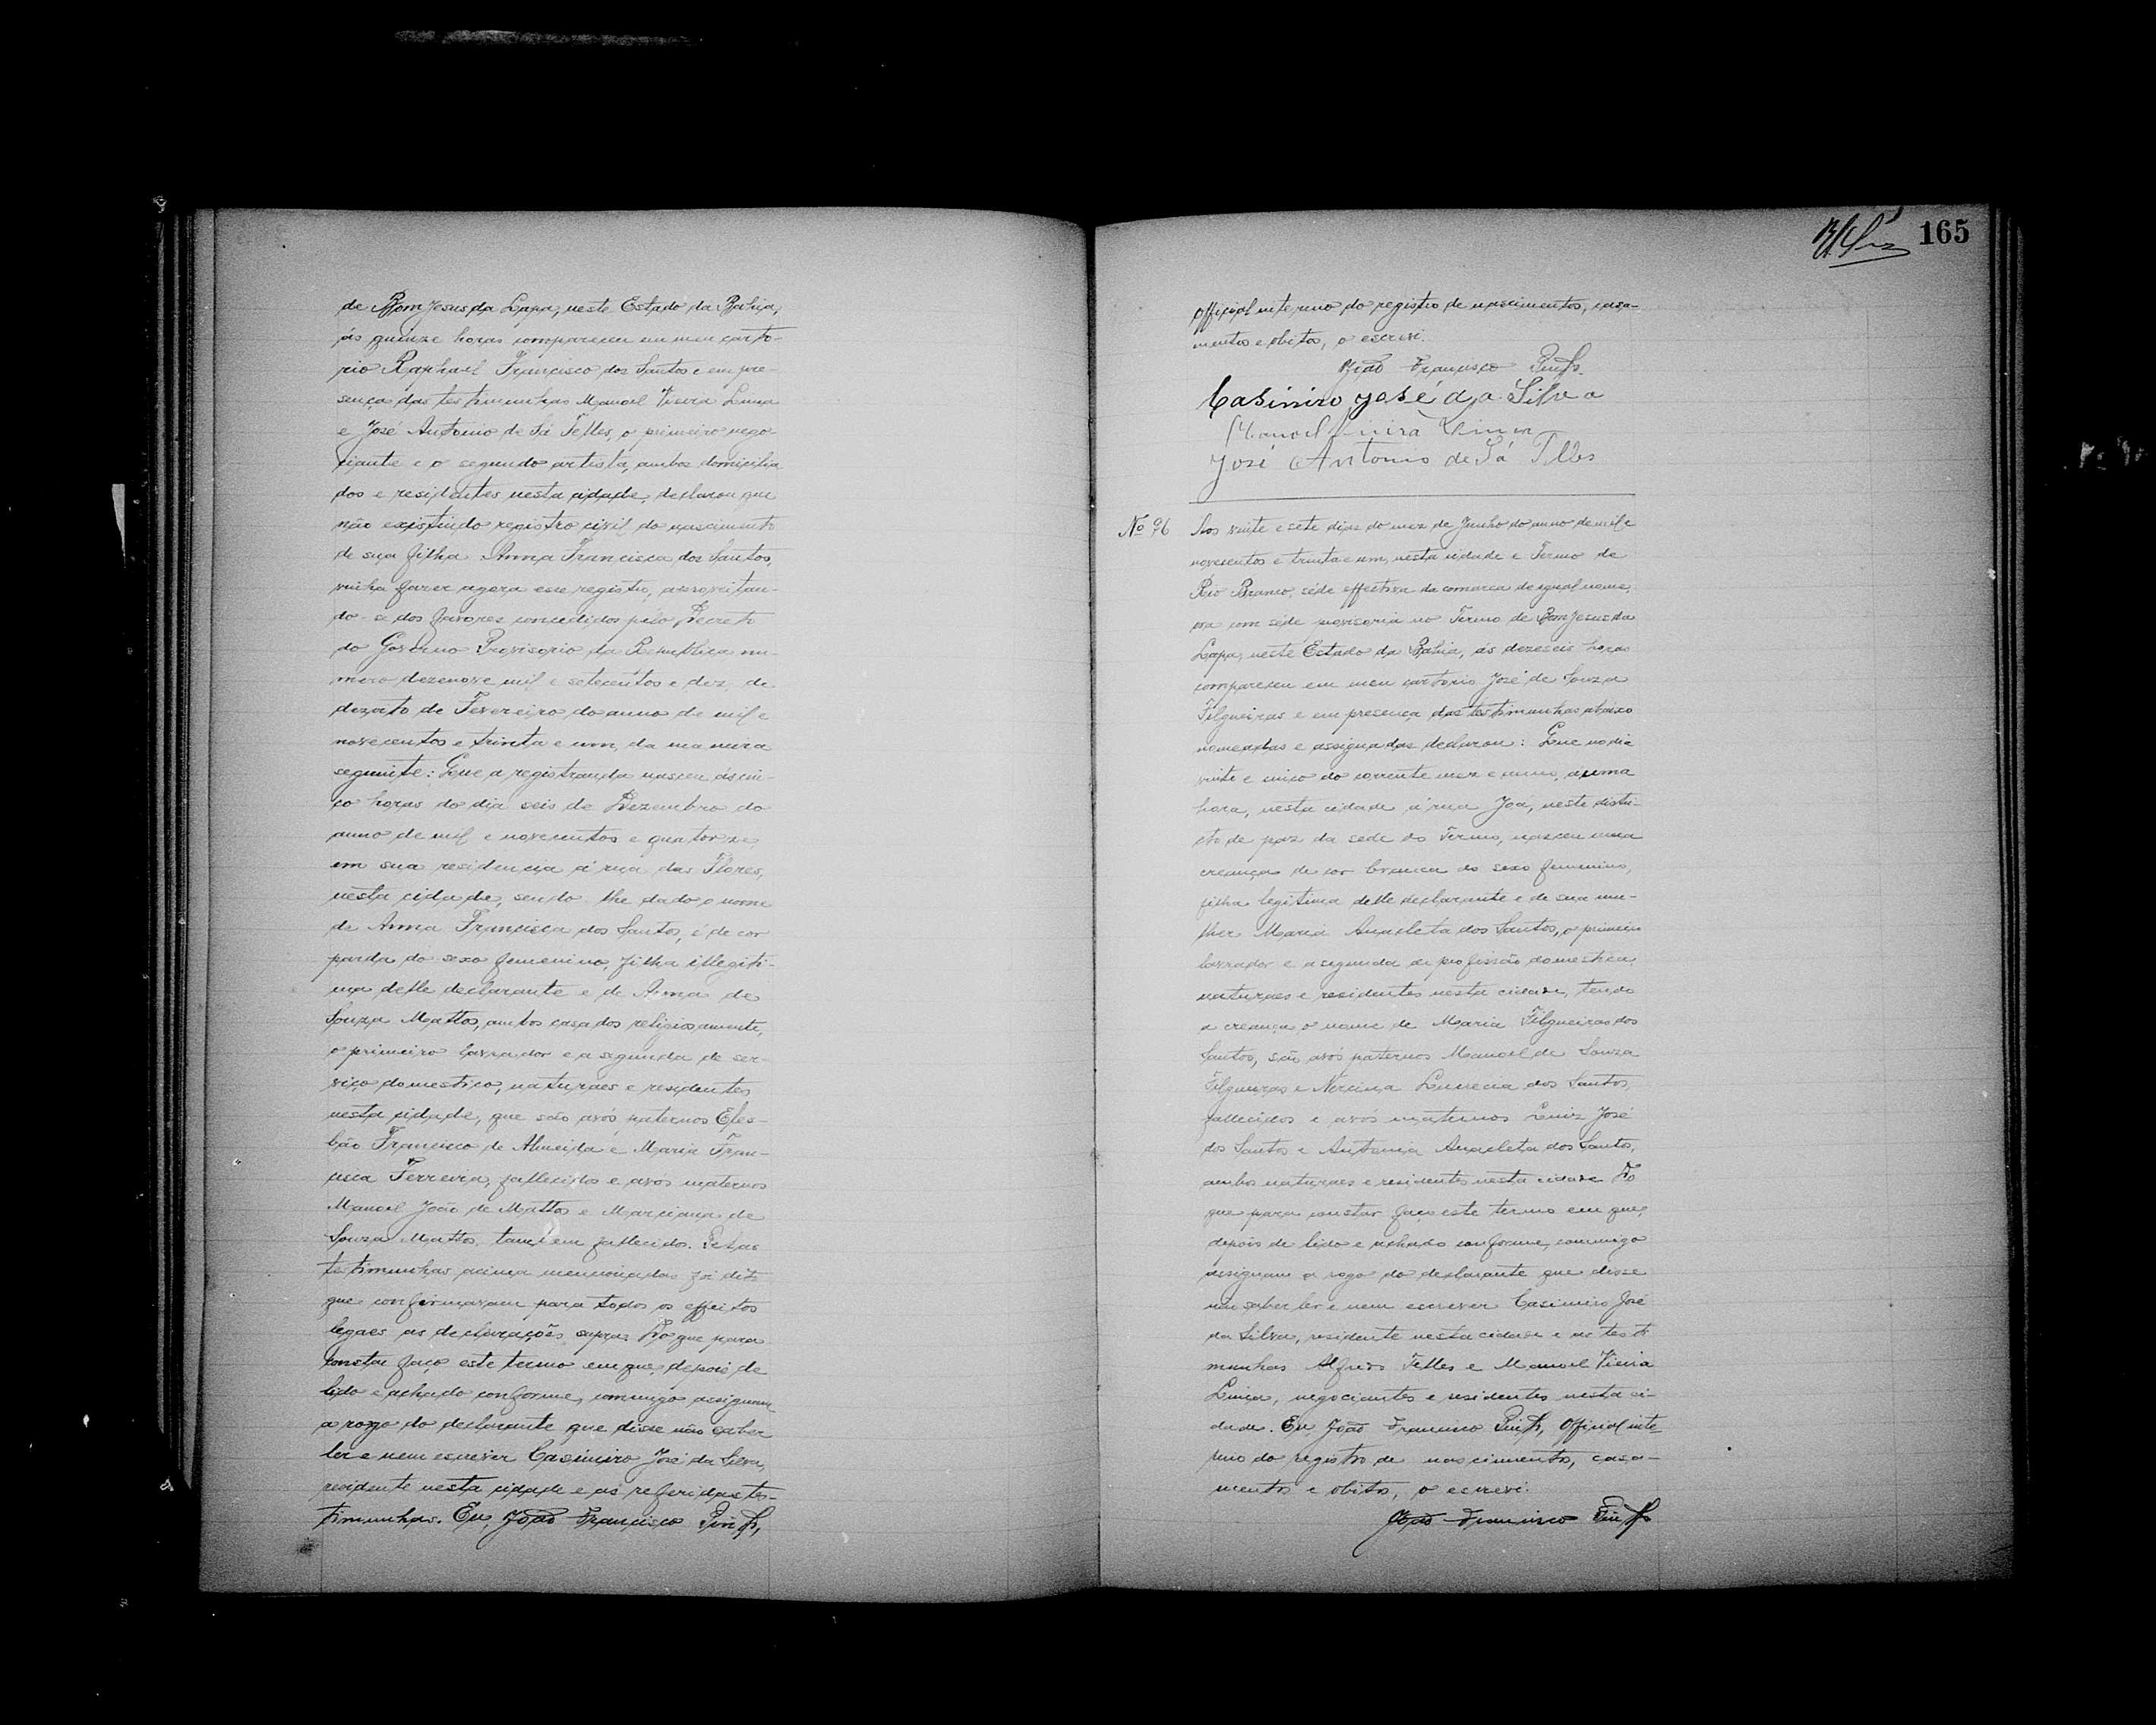 de Bom Jesus da Lapa, neste Estado da Bahia,
ás quinze horas compareceu em meu carto-
rio Raphael Francisco dos Santos e em pre-
sença das testimunhas Manoel Vieira Lima
e José Antonio de Sá Telles, o primeiro nego-
ciante e o segundo artista, ambos domicilia-
dos e residentes nesta cidade, declarou que
não existindo registro civil do nascimento
de sua filha Anna Francisca dos Santos,
vinha fazer agora esse registro, aproveitan-
do-se dos favores concedidos pelo Decreto
do Governo Provisorio da Republica nu-
mero dezenove mil e setecentos e dez, de
dezoito de Fevereiro do anno de mil e
novecentos e trinta e um, da maneira
seguinte: Que a registranda nasceu ás cin-
co horas do dia seis de Dezembro do
anno de mil e novecentos e quatorze
em sua residencia á rua das Flores,
nesta cidade, sendo-lhe dado o nome
de Anna Francisca dos Santos, é de cor
parda do sexo femenino, filha illegiti-
ma delle declarante e de Anna de
Souza Mattos, ambos casados religiosamente,
o primeiro lavrador e a segunda de ser-
viço domestico, naturaes e residentes
nesta cidade, que são avós paternos Eles-
bão Francisco de Almeida e Maria Fran-
cisca Ferreira, fallecidos e avós maternos
Manoel João de Mattos e Marciana de
Souza Mattos, tambem fallecidos. Pelas
testimunhas acima mencionadas foi dito
que confirmavam para todos os effeitos
legaes as declarações supras. Do que para
constar faço este termo em que, depois de
lido e achado conforme, commigo assignam
a rogo do declarante que disse não saber
ler e nem escrever Casimiro José da Silva,
residente nesta cidade e as referidas tes-
timunhas. Eu, João Francisco
165
official interino do registro de nascimentos, casa-
mentos e obitos, o escrevi.
João Francisco
Casimiro José da Silva
Manoel Vieira Lima
José Antonio de Sá Telles
Nº 96
Aos vinte e sete dias do mez de Junho do anno de mil e
novecentos e trinta e um, nesta cidade e Termo de
Rio Branco, séde effectiva da comarca de igual nome,
ora com séde provisoria no Termo de Bom Jesus da
Lapa, neste Estado da Bahia, ás dezeseis horas
compareceu em meu cartorio José de Souza
Filgueiras e em presença das testimunhas abaixo
nomeadas e assignadas declarou: Que no dia
vinte e cinco do corrente mez e anno, a uma
hora, nesta cidade á rua Joá, neste distri-
cto de paz da sede do Termo, nasceu uma
creança de cor branca do sexo femenino,
filha legitima delle declarante e de sua mu-
lher Maria Anacleta dos Santos, o primeiro
lavrador e a segunda de profissão domestica,
naturaes e residentes nesta cidade, tendo
a creança o nome de Maria Filgueiras dos
Santos, são avós paternos Manoel de Souza
Filgueiras e dos Santos,
fallecidos e avós maternos Luiz José
dos Santos e Antonia Anacleta dos Santos,
ambos naturaes e residentes nesta cidade. Do
que para constar faço este termo em que,
depois de lido e achado conforme, commigo
assignam a rogo do declarante que disse
não saber ler e nem escrever Casimiro José
da Silva, residente nesta cidade e as testi-
munhas Alfredo Telles e Manoel Vieira
Lima, negociantes e residentes nesta ci-
dade. Eu, João Francisco official inte-
rino do registro de nascimento, casa-
mentos e obitos, o escrevi.
João Francisco